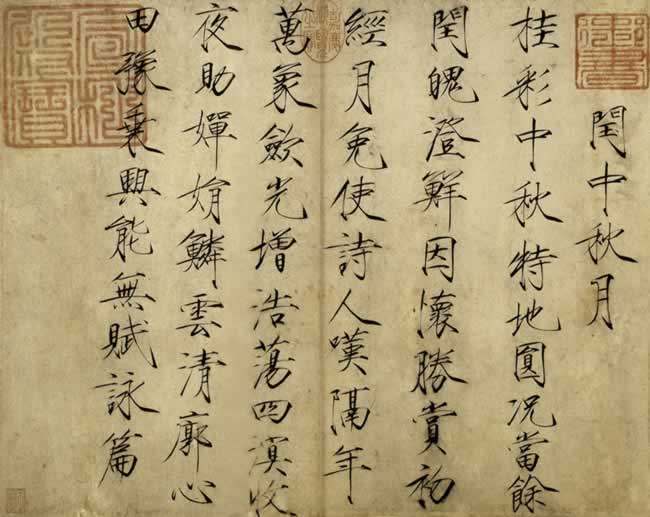 御書
閏中秋月
桂彩中秋特地圓况當餘
閏魄澄鮮因懷勝賞初
經月免使詩人嘆隔年
萬象歛光增浩蕩四溟收
夜助嬋娟鱗雲清廓心
田豫乗興能無賦詠篇